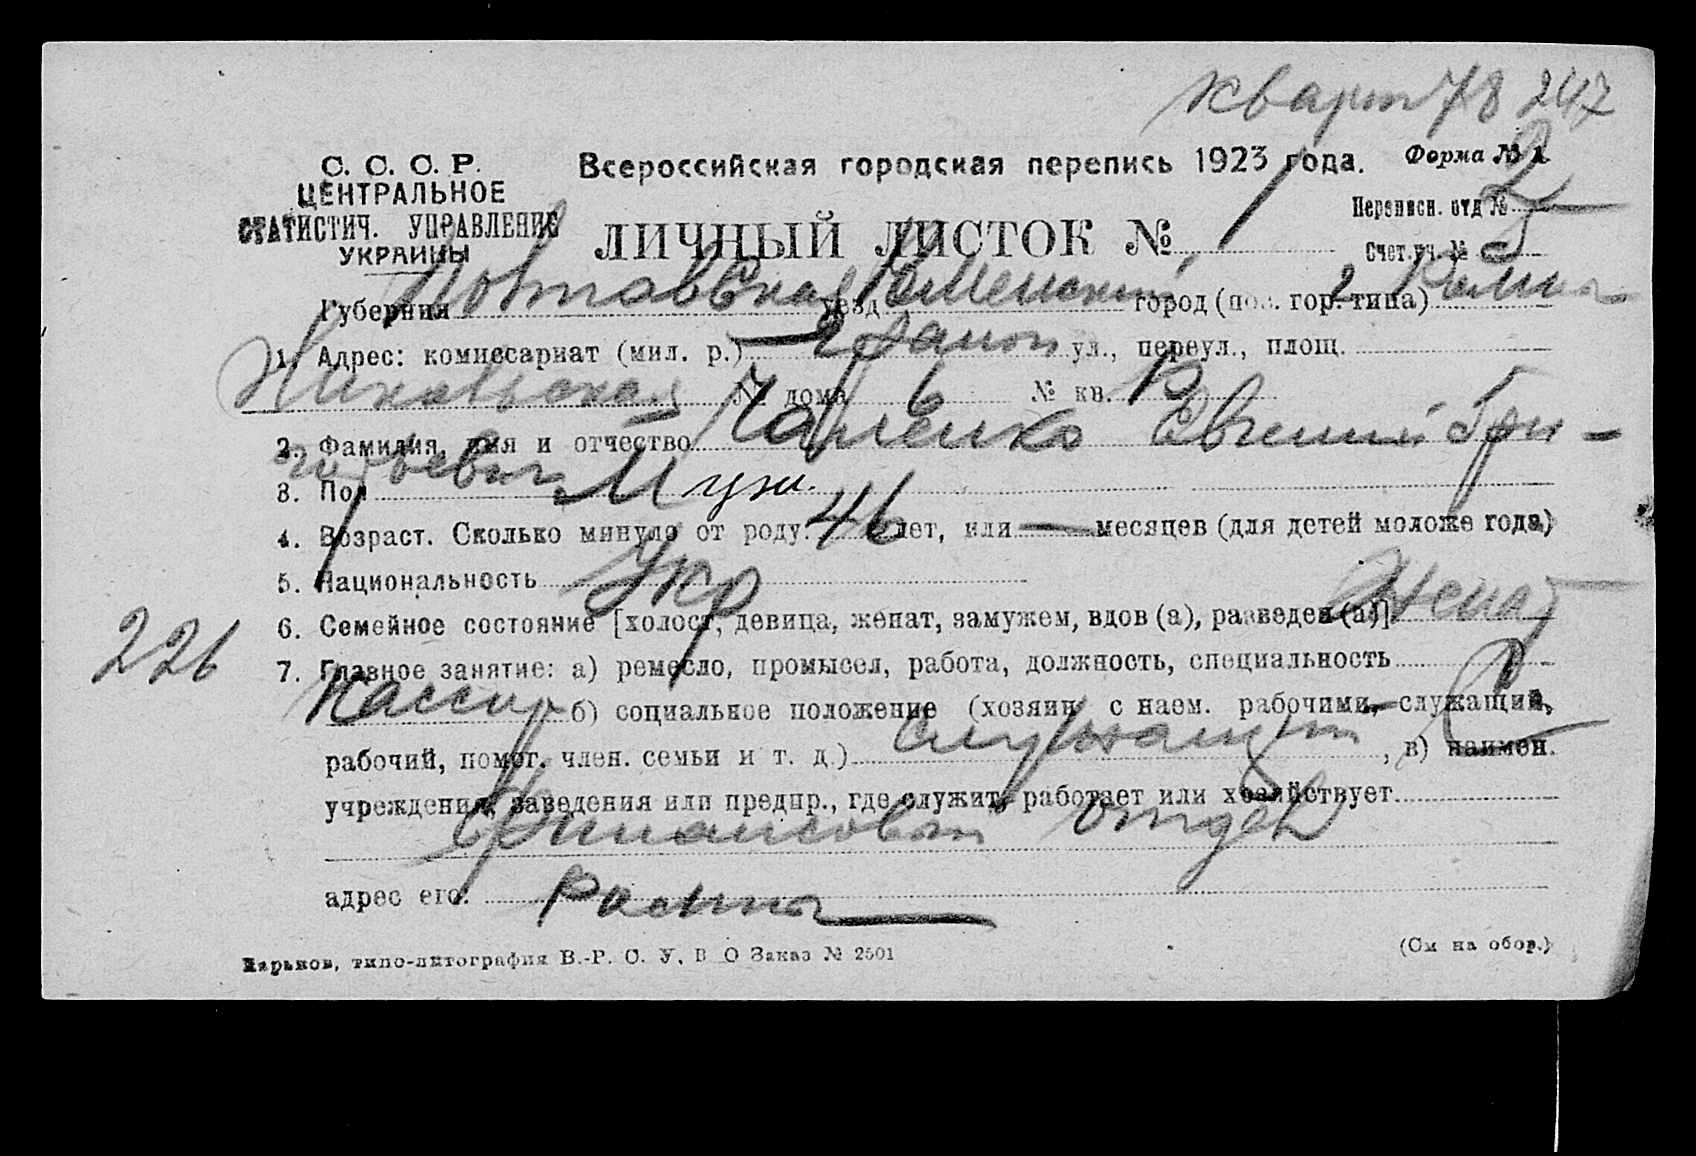 Кварт 78 247
С. С. С. Р.
ЦЕНТРАЛЬНОЕ
СТАТИСТИЧ. УПРАВЛЕНИЕ
УКРАИНЫ
Всероссийская городская перепись 1923 года.
Форма № 2
Переписн. отд № 2
ЛИЧНЫЙ ЛИСТОК № 1
Счет. уч. № 5
Губерния Полтавская уезд Роменский город (пос. гор. типа) г. Ромны
1. Адрес: комиссариат (мил. р.) 2 район ул., переул., площ.
№ дома 6 № кв.
2. Фамилия, имя и отчество Евгений Гри-
горьевич
3. Пол Муж.
4. Возраст. Сколько минуло от роду: 46 лет, или — месяцев (для детей моложе года)
5. Национальность Укр
6. Семейное состояние [холост, девица, женат, замужем, вдов (а), разведен (а)] Женат
226
7. Главное занятие: а) ремесло, промысел, работа, должность, специальность
Кассир б) социальное положение (хозяин с наем. рабочими, служащий,
рабочий, помог. член. семьи и т. д.) служащий, в) наимен.
учреждения, заведения или предпр., где служит, работает или хозяйствует
Финансовый отдел
адрес его: Ромны
Харьков, типо-литография В.-Р. С. У. В О Заказ № 2501
(См на обор.)